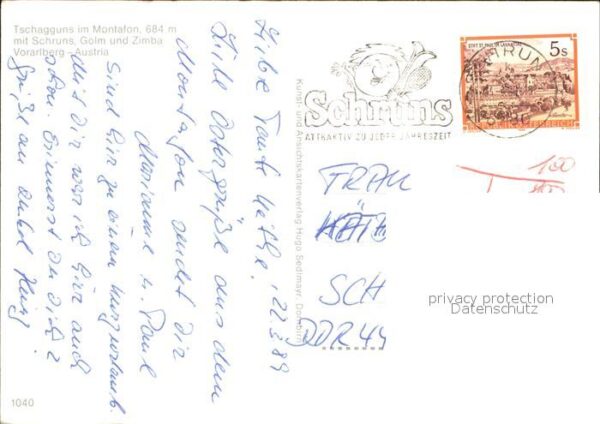 Tschagguns im Montafon, 684 m
mit Schruns, Golm und Zimba
Vorarlberg - Austria
22.3.89
Liebe Tante Käthe!
Liebe Ostergrüße aus dem
Montafon sendet dir
Marianne u. Paul
Sind hier zu einem Kurzurlaub.
Mit dir war ich hier auch
schon. Erinnerst du dich?
Grüße an Onkel Heinz!
1040
Kunst- und Ansichtskartenverlag Hugo Sedlmayr, Dornbirn
Schruns
ATTRAKTIV ZU JEDER JAHRESZEIT
SCHRUNS
STIFT ST. PAUL IM LAVANTTAL
5s
REPUBLIK ÖSTERREICH
100
FRAU
KÄTE
SCH
DDR 44
privacy protection
Datenschutz